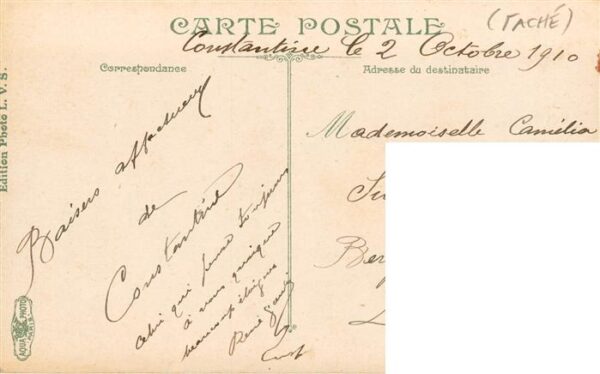 (TACHÉ)
CARTE POSTALE
Constantine le 2 Octobre 1910
Correspondance
Adresse du destinataire
Edition Photo L. V. S.
Mademoiselle Camélia
Baisers affectueux
de
Constantine
celui qui pense toujours
à vous quoique
beaucoup éloigné
René
AQUA PHOTO
PARIS